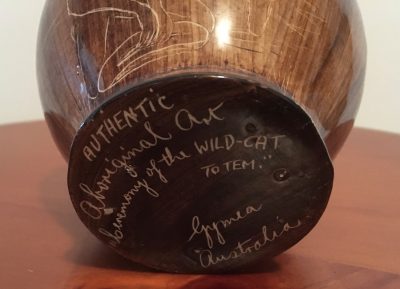 AUTHENTIC
Aboriginal Art
Ceremony of the WILD-CAT
TOTEM."
Gymea
Australia